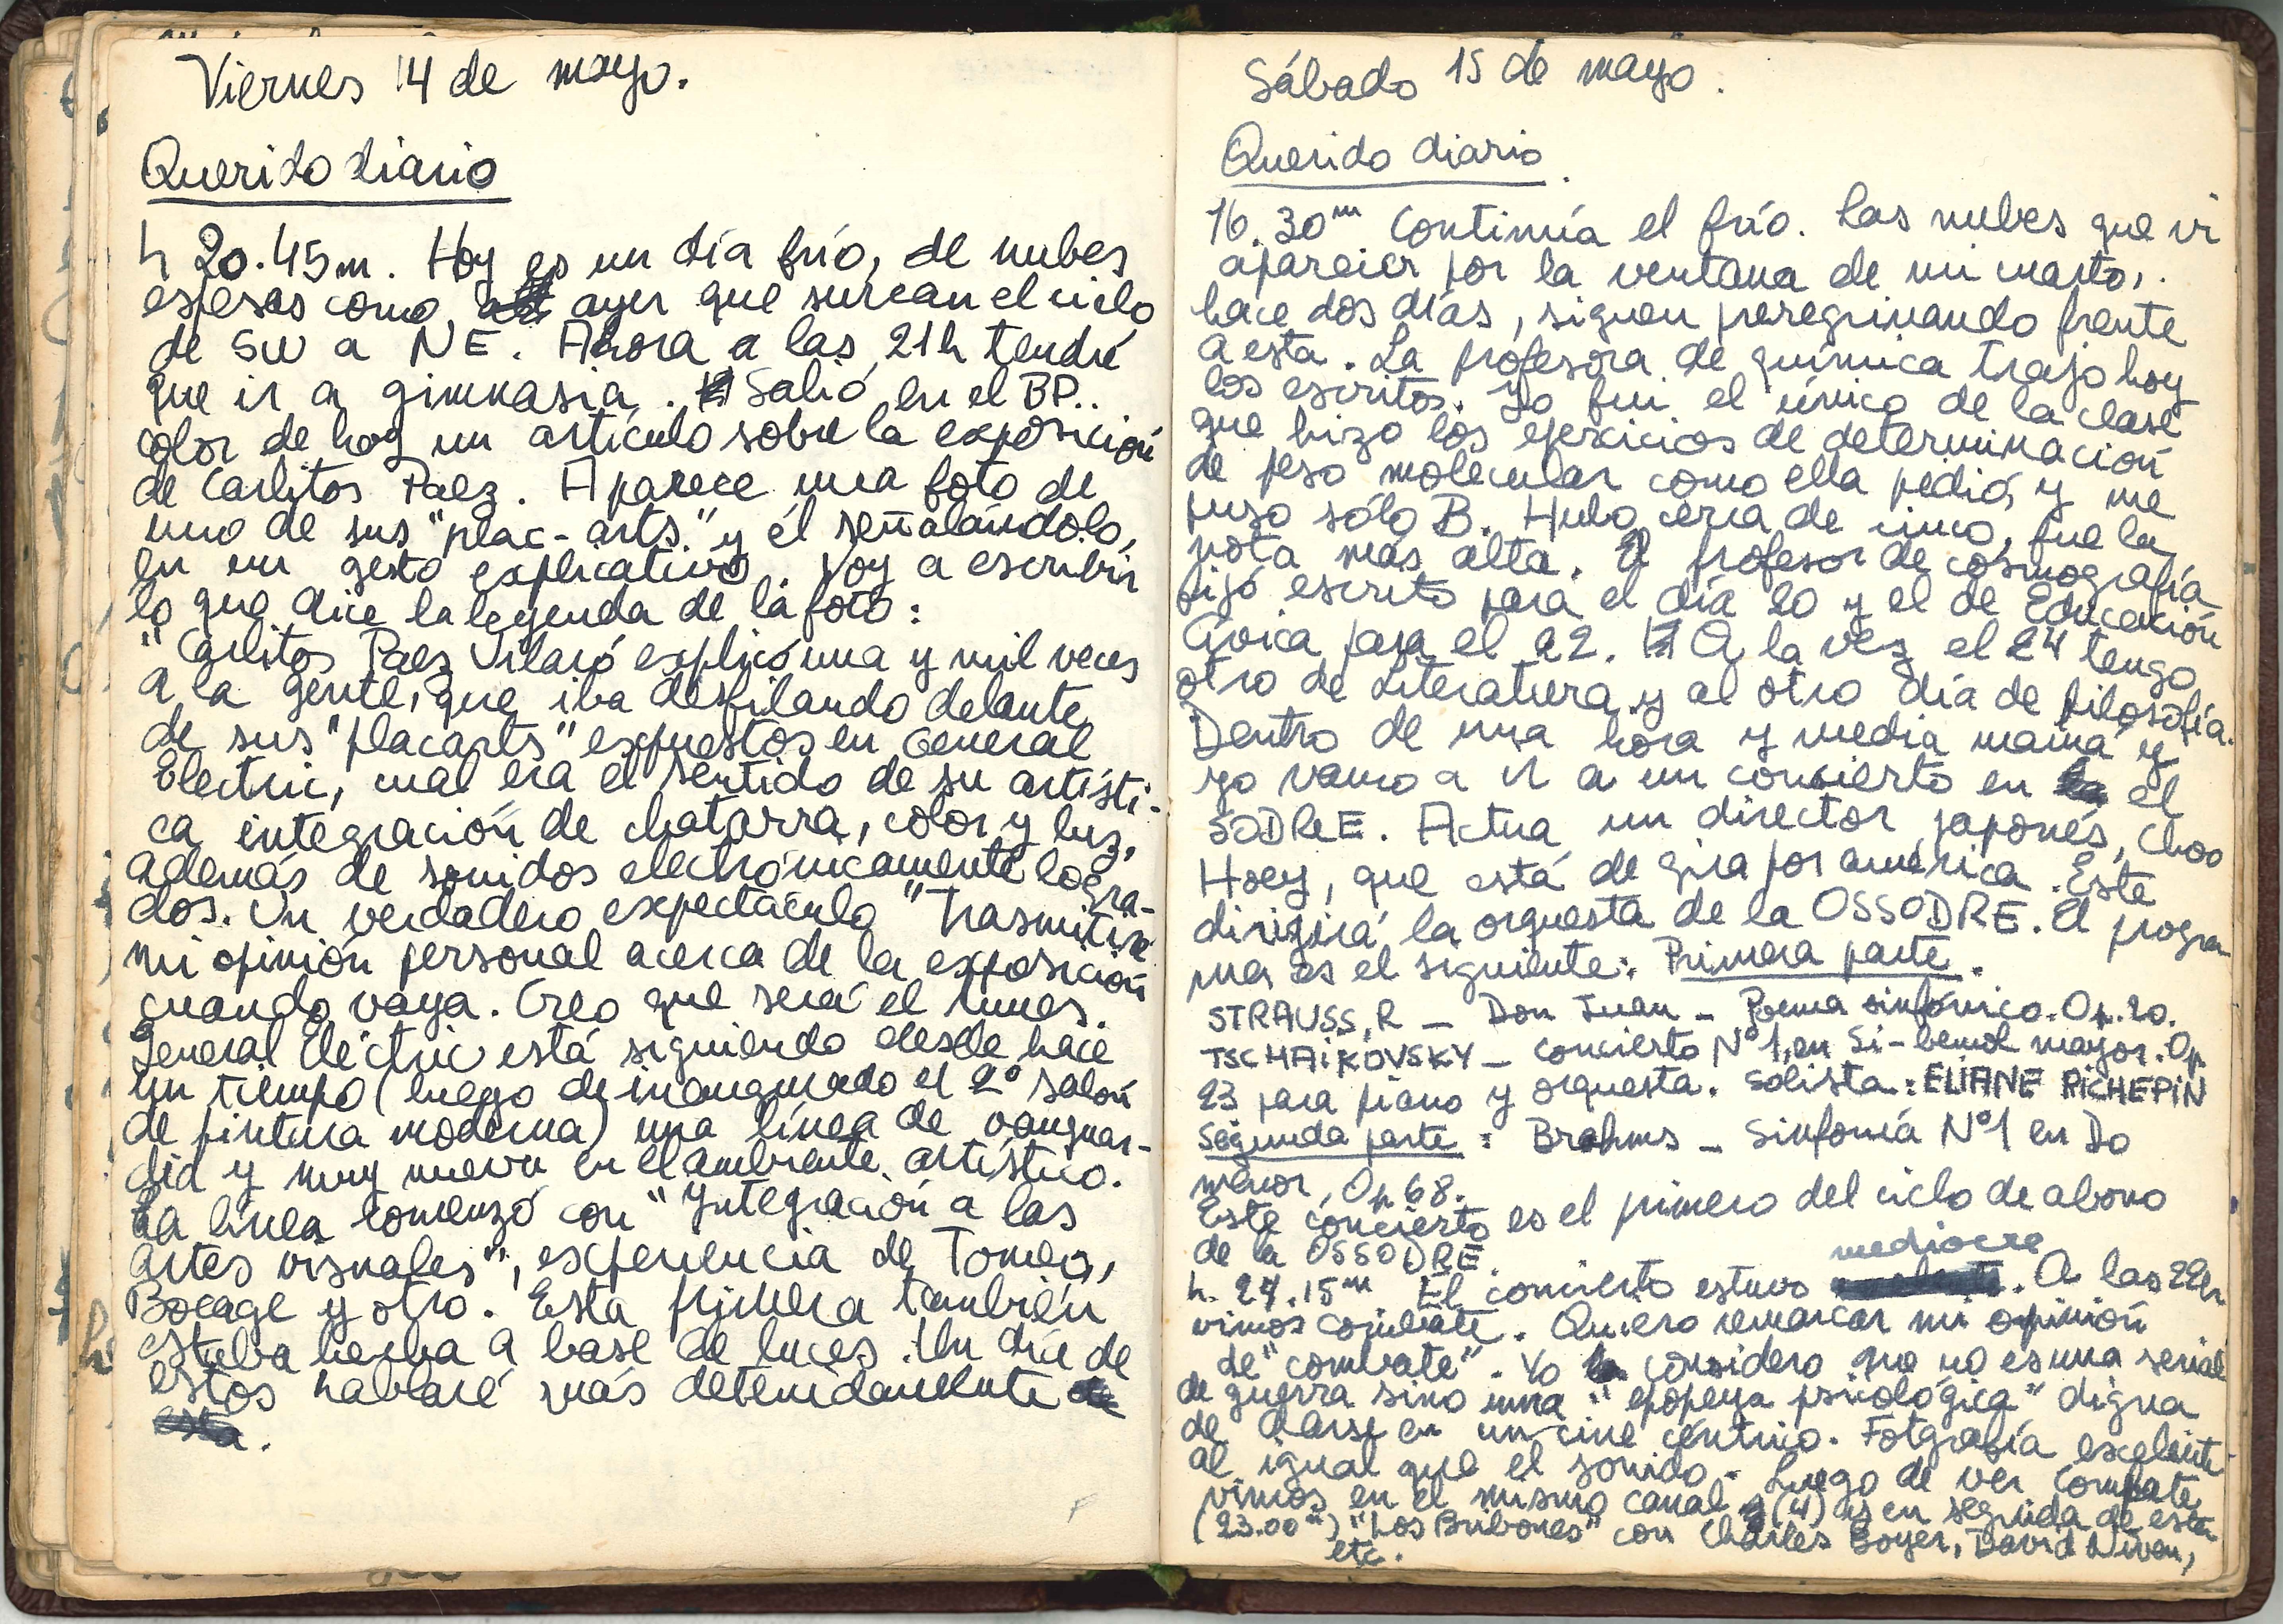 Viernes 14 de mayo.
Querido diario
h 20.45m. Hoy es un día frío, de nubes
espesas como ayer que surcan el cielo
de SW a NE. Ahora a las 21h tendré
que ir a gimnasia. Salió en el BP..
color de hoy un artículo sobre la exposición
de Carlitos Paez. Aparece una foto de
uno de sus "plac-arts" y él señalándolo,
en un gesto explicativo. Voy a escribir
lo que dice la leyenda de la foto:
"Carlitos Paez Vilaró explicó una y mil veces
a la gente, que iba desfilando delante
de sus "placarts" expuestos en General
Electric, cual era el sentido de su artísti-
ca integración de chatarra, color y luz,
además de sonidos electrónicamente logra-
dos. Un verdadero expectáculo" Trasmitiré
mi opinión personal acerca de la exposición
cuando vaya. Creo que será el lunes.
General Eléctric está siguiendo desde hace
un tiempo (luego de inaugurado el 2º salón
de pintura moderna) una línea de vanguar-
dia y muy nueva en el ambiente artístico.
La línea comenzó con "Yntegración a las
artes visuales", experiencia de Tomeo,
Bocage y otro. Esta primera también
estaba hecha a base de luces. Un día de
estos hablaré más detenidamente
.
Sábado 15 de mayo.
Querido diario.
16.30m Continúa el frío. Las nubes que vi
aparecer por la ventana de mi cuarto,
hace dos días, siguen peregrinando frente
a esta. La profesora de química trajo hoy
los escritos. Yo fui el único de la clase
que hizo los ejercicios de determinación
de peso molecular como ella pedió, y me
puso sólo B. Hubo cerca de cinco, fue la
nota más alta. El profesor de cosmografía
fijó escrito para el día 20 y el de Educación
Cívica para el 22. A la vez el 24 tengo
otro de Literatura y al otro día de filosofía.
Dentro de una hora y media mamá y
yo vamo a ir a un concierto en el
SODRE. Actua un director japonés, Choo
Hoey, que está de gira por américa. Este
dirigirá la orquesta de la OSSODRE. El progra
ma es el siguiente: Primera parte.
STRAUSS, R — Don Juan — Poema sinfónico. Op. 20.
TSCHAIKOVSKY — Concierto Nº1, en Si-bemol mayor. Op
23 para piano y orquesta. Solista: ELIANE RICHEPIN
Segunda parte: Brahms — Sinfonía Nº1 en Do
menor, Op 68.
Este concierto es el primero del ciclo de abono
de la OSSODRE.
mediocre
h. 24.15m El concierto estuvo . A las 22h
vimos combate. Quiero remarcar mi opinión
de "combate". Yo considero que no es una serial
de guerra sino una "epopeya psicológica" digna
de darse en un cine céntrico. Fotgrafía excelente
al igual que el sonido. Luego de ver Combate
vimos en el mismo canal (4) en seguida de esta
(23.00m) "Los Bribones" con Charles Boyer, David Niven,
etc.